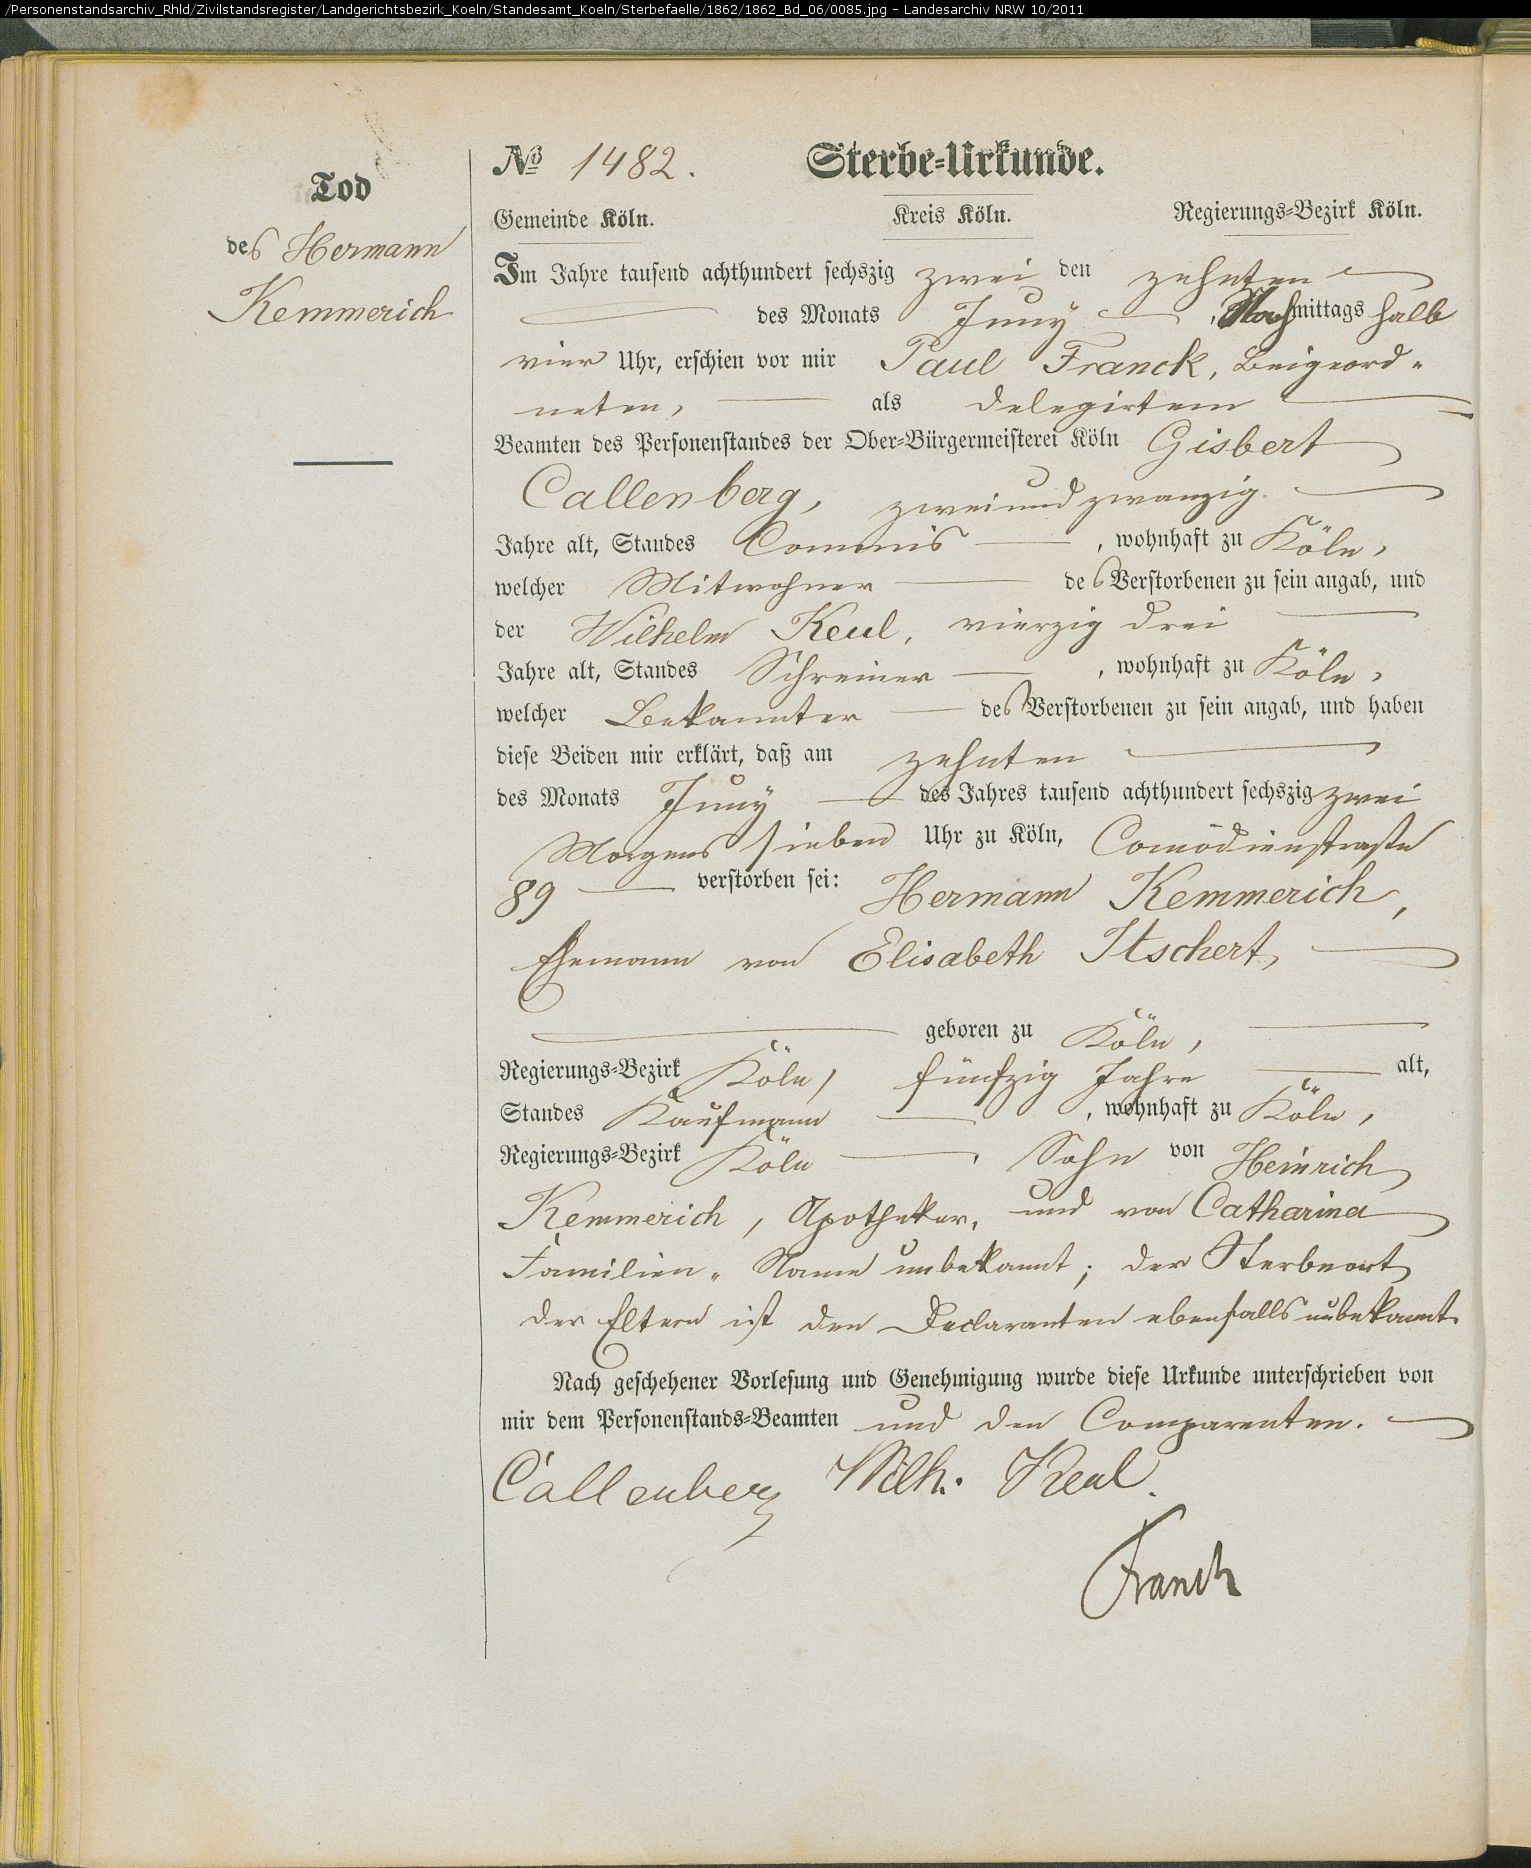 /Personenstandsarchiv_Rhld/Zivilstandsregister/Landgerichtsbezirk_Koeln/Standesamt_Koeln/Sterbefaelle/1862/1862_Bd_06/0085.jpg - Landesarchiv NRW 10/2011
Tod
des Hermann
Kemmerich
No 1482.
Sterbe-Urkunde.
Gemeinde Köln. Kreis Köln. Regierungs-Bezirk Köln.
Im Jahre tausend achthundert sechszig zwei den zehnten
des Monats Juny, Nachmittags halb
vier Uhr, erschien vor mir Paul Franck, Beigeord-
neten, als delegirtem
Beamten des Personenstandes der Ober-Bürgermeisterei Köln Gisbert
Callenberg, zweiundzwanzig
Jahre alt, Standes Commis, wohnhaft zu Köln,
welcher Mitwohner des Verstorbenen zu sein angab, und
der Wilhelm Keul, vierzig drei
Jahre alt, Standes Schreiner, wohnhaft zu Köln,
welcher Bekannter des Verstorbenen zu sein angab, und haben
diese Beiden mir erklärt, daß am zehnten
des Monats Juny des Jahres tausend achthundert sechszig zwei
Morgens sieben Uhr zu Köln, Comödienstraße
89 verstorben sei: Hermann Kemmerich,
Ehemann von Elisabeth Itschert,
geboren zu Köln,
Regierungs-Bezirk Köln, fünfzig Jahre alt,
Standes Kaufmann, wohnhaft zu Köln,
Regierungs-Bezirk Köln, Sohn von Heinrich
Kemmerich, Apotheker, und von Catharina
Familien-Name unbekannt; der Sterbeort
der Eltern ist den Declaranten ebenfalls unbekannt.
Nach geschehener Vorlesung und Genehmigung wurde diese Urkunde unterschrieben von
mir dem Personenstands-Beamten und den Comparenten.
Callenberg Wilh. Keul.
Franck